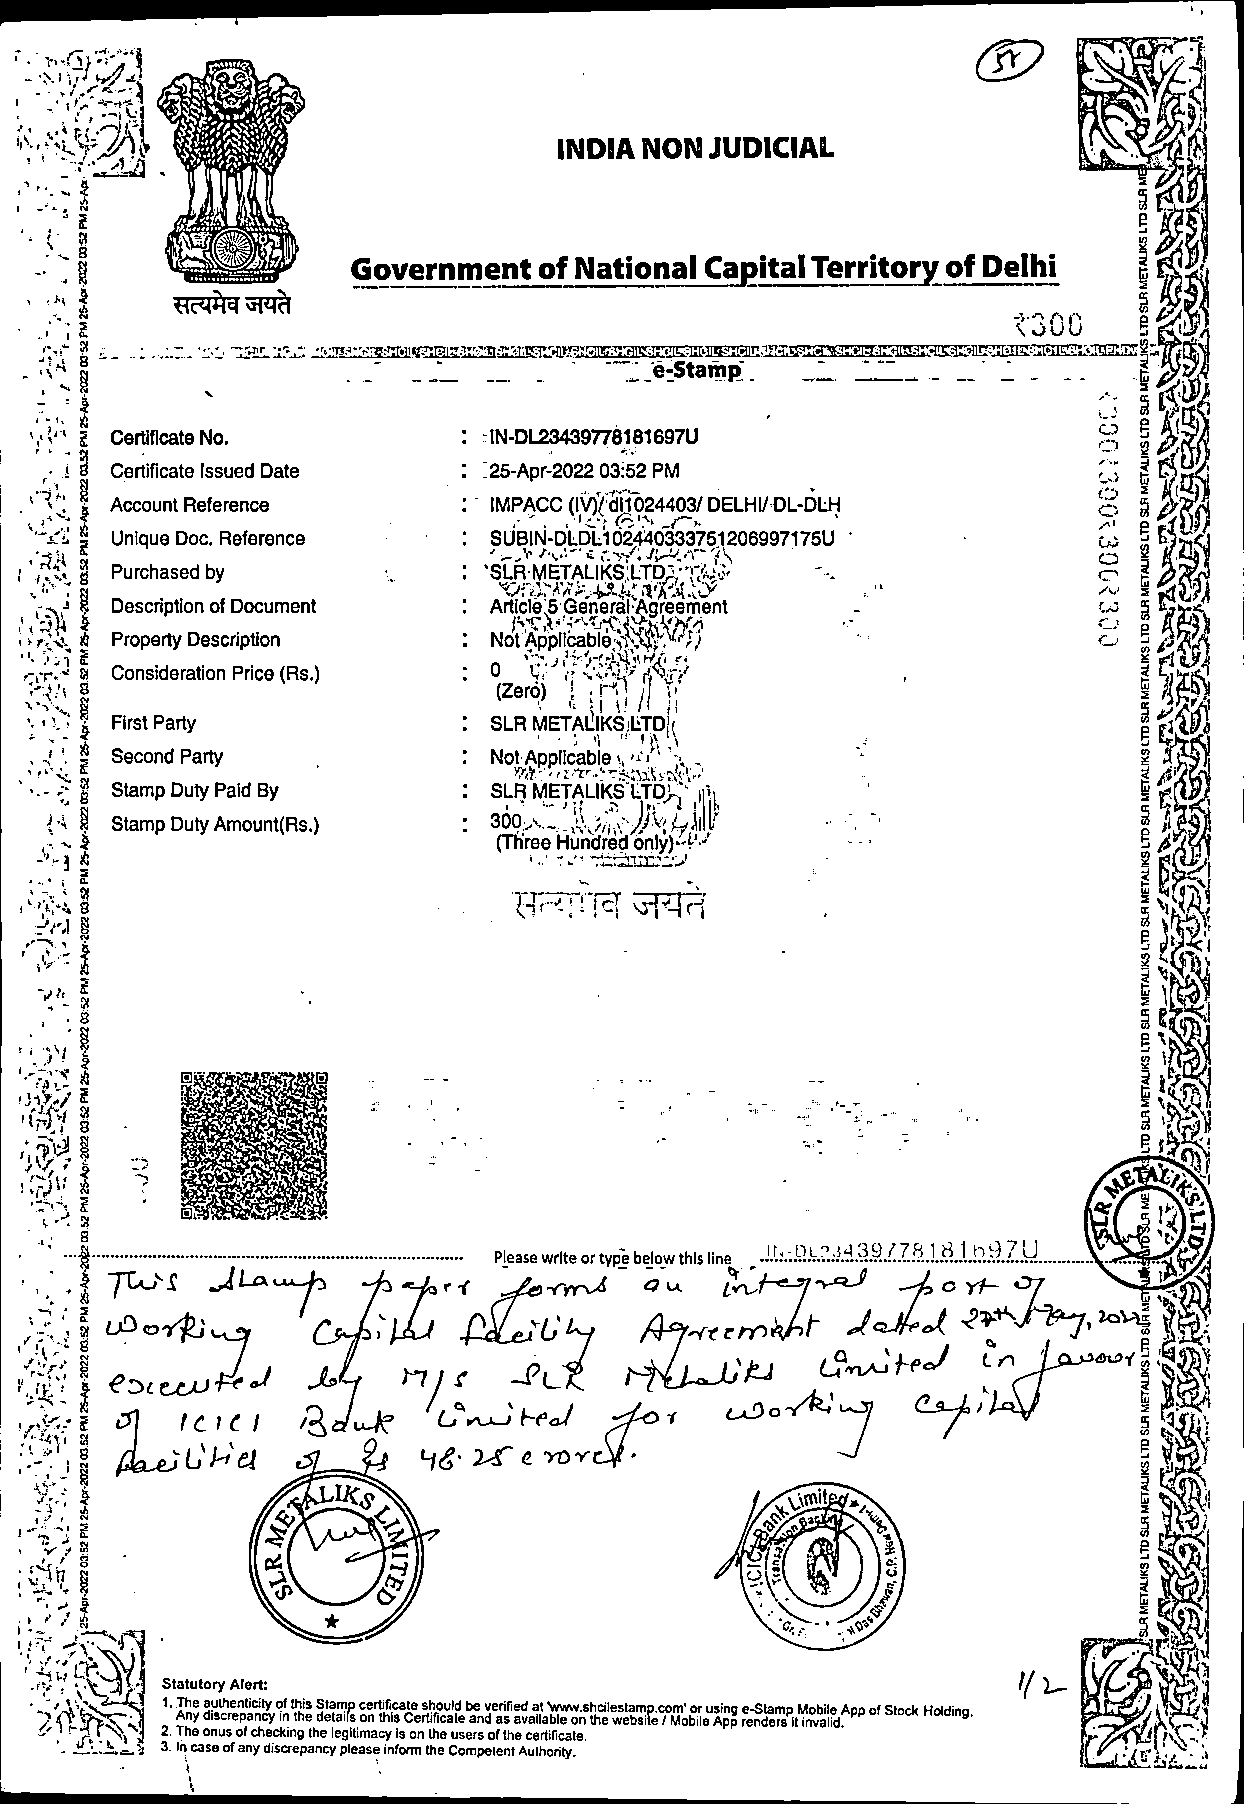 51
INDIA NON JUDICIAL
Government of National Capital Territory of Delhi
सत्यमेव जयते
₹300
e-Stamp
Certificate No. : IN-DL23439778181697U
Certificate Issued Date : 25-Apr-2022 03:52 PM
Account Reference : IMPACC (IV)/ dl1024403/ DELHI/ DL-DLH
Unique Doc. Reference : SUBIN-DLDL102440333751206997175U
Purchased by : SLR METALIKS LTD
Description of Document : Article 5 General Agreement
Property Description : Not Applicable
Consideration Price (Rs.) : 0
(Zero)
First Party : SLR METALIKS LTD
Second Party : Not Applicable
Stamp Duty Paid By : SLR METALIKS LTD
Stamp Duty Amount(Rs.) : 300
(Three Hundred only)
सत्यमेव जयते
Please write or type below this line IN-DL23439778181697U
This stamp paper forms an integral part of
Working Capital Facility Agreement dated 27th May, 2022
executed by M/s SLR Metaliks Limited in favour
of ICICI Bank Limited for working capital
facilities of Rs 48.25 crores.
SLR METALIKS LTD
SLR METALIKS LIMITED
ICICI Bank Limited
Statutory Alert:
1. The authenticity of this Stamp certificate should be verified at 'www.shcilestamp.com' or using e-Stamp Mobile App of Stock Holding.
Any discrepancy in the details on this Certificate and as available on the website / Mobile App renders it invalid.
2. The onus of checking the legitimacy is on the users of the certificate.
3. In case of any discrepancy please inform the Competent Authority.
1/2